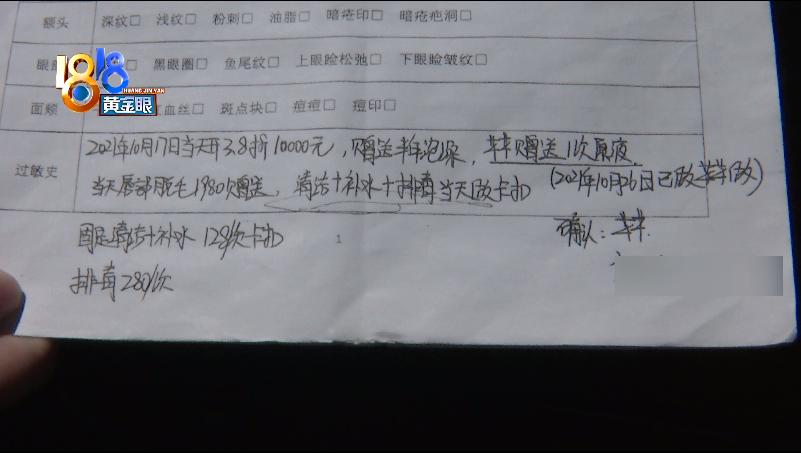 额头 深纹□ 浅纹□ 粉刺□ 油脂□ 暗疮印□ 暗疮疤洞□
眼部 黑眼圈□ 鱼尾纹□ 上眼睑松弛□ 下眼睑皱纹□
1818
HUANG JIN YAN
黄金眼
面颊 红血丝□ 斑点块□ 痘痘□ 痘印□
过敏史
2021年10月17日当天开3.8折10000元,赠送半年泡澡,芊芊赠送1次原液.
当天唇部脱毛1980赠送,清洁+补水+排毒当天做卡扣 (2021年10月26日已做芊芊做)
固定清洁+补水 128/次卡扣
1
确认:芊芊.
排毒280/次